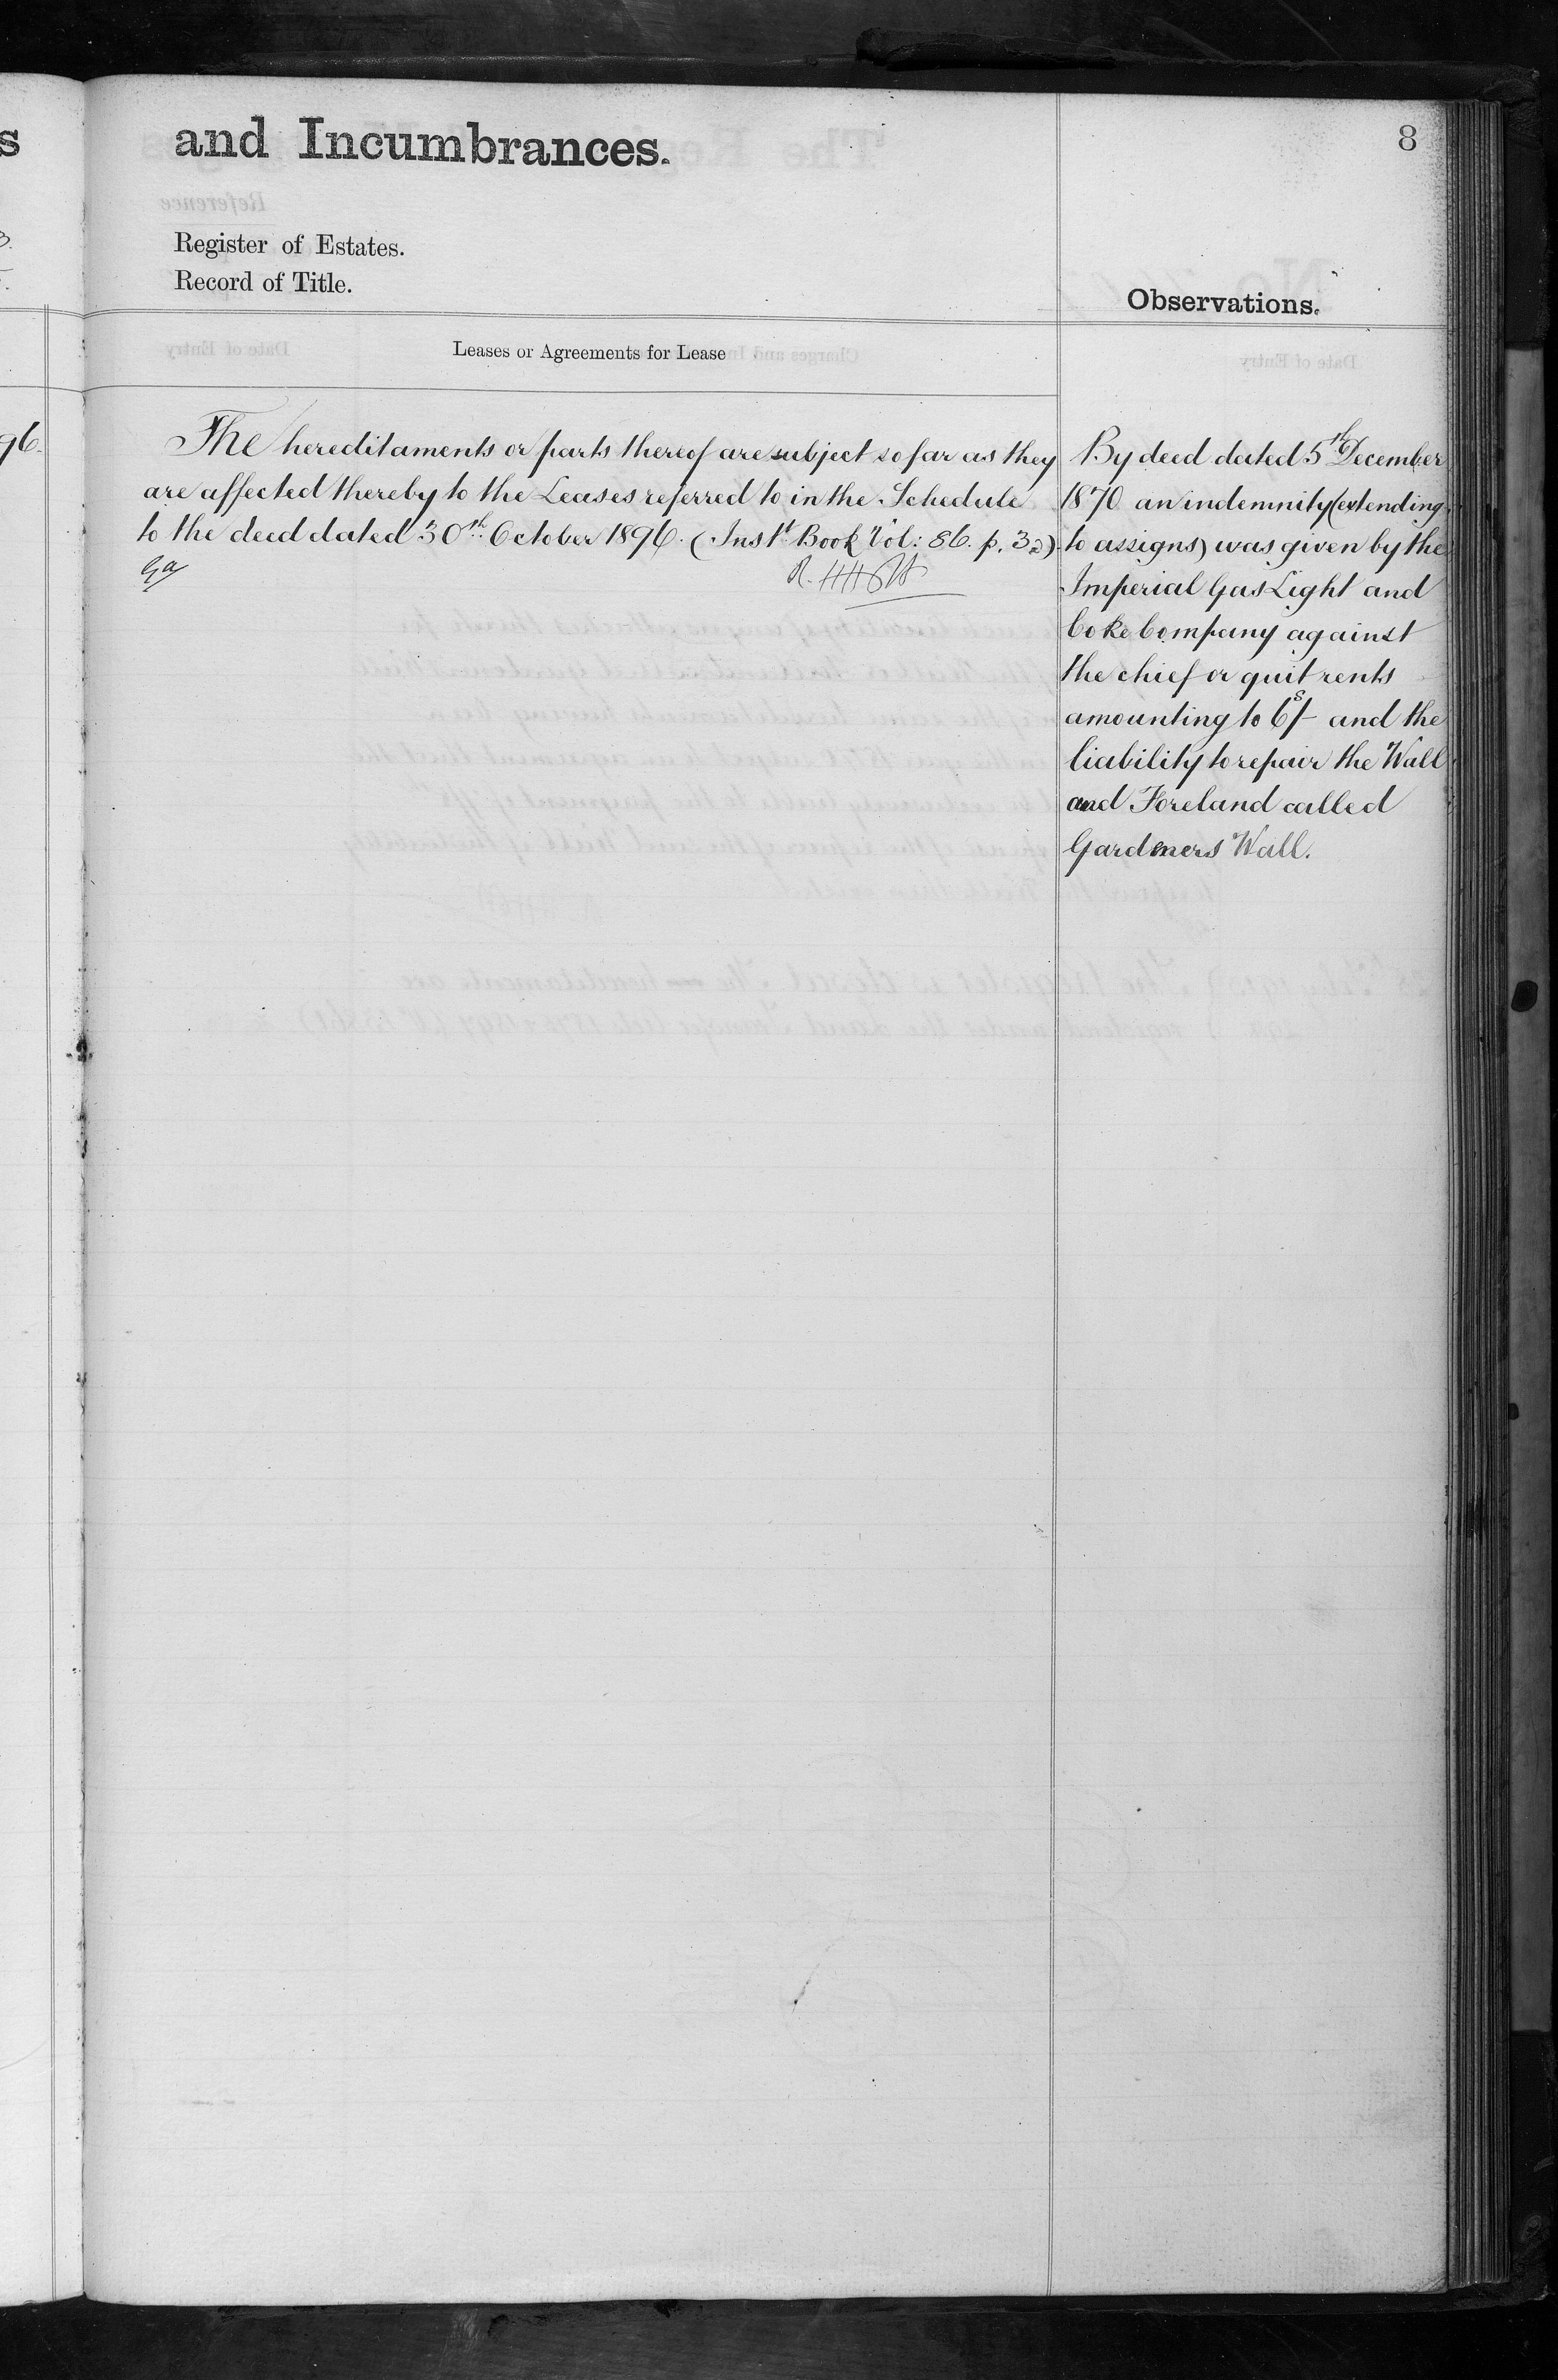 and Incumbrances.
8
Register of Estates.
Record of Title.
Observations.
Leases or Agreements for Lease
The hereditaments or parts thereof are subject so far as they
are affected thereby to the Leases referred to in the Schedule
to the deed dated 30th October 1896. (Inst Book Vol: 86. p. 32)
By deed dated 5th December
1870 an indemnity (extending
to assigns) was given by the
Imperial Gas Light and
Coke Company against
the chief or quit rents
amounting to 6s/- and the
liability to repair the Wall
and Foreland called
Gardeners Wall.